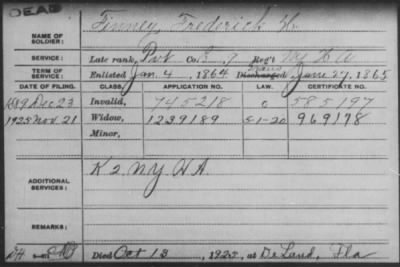 DEAD
NAME OF SOLDIER: Finney, Frederick H.
SERVICE: Late rank, Pvt Co. Reg't NY H A
TERM OF SERVICE: Enlisted Jan. 4, 1864 Discharged June 27, 1865
DATE OF FILING. CLASS. APPLICATION NO. LAW. CERTIFICATE NO.
Dec 23 Invalid, 745218 C 585197
1925 Nov 21 Widow, 1239189 5-1-20 969178
Minor,
ADDITIONAL SERVICES: K 2 NY H A.
REMARKS:
Died Oct 13, 1925, at DeLand, Fla